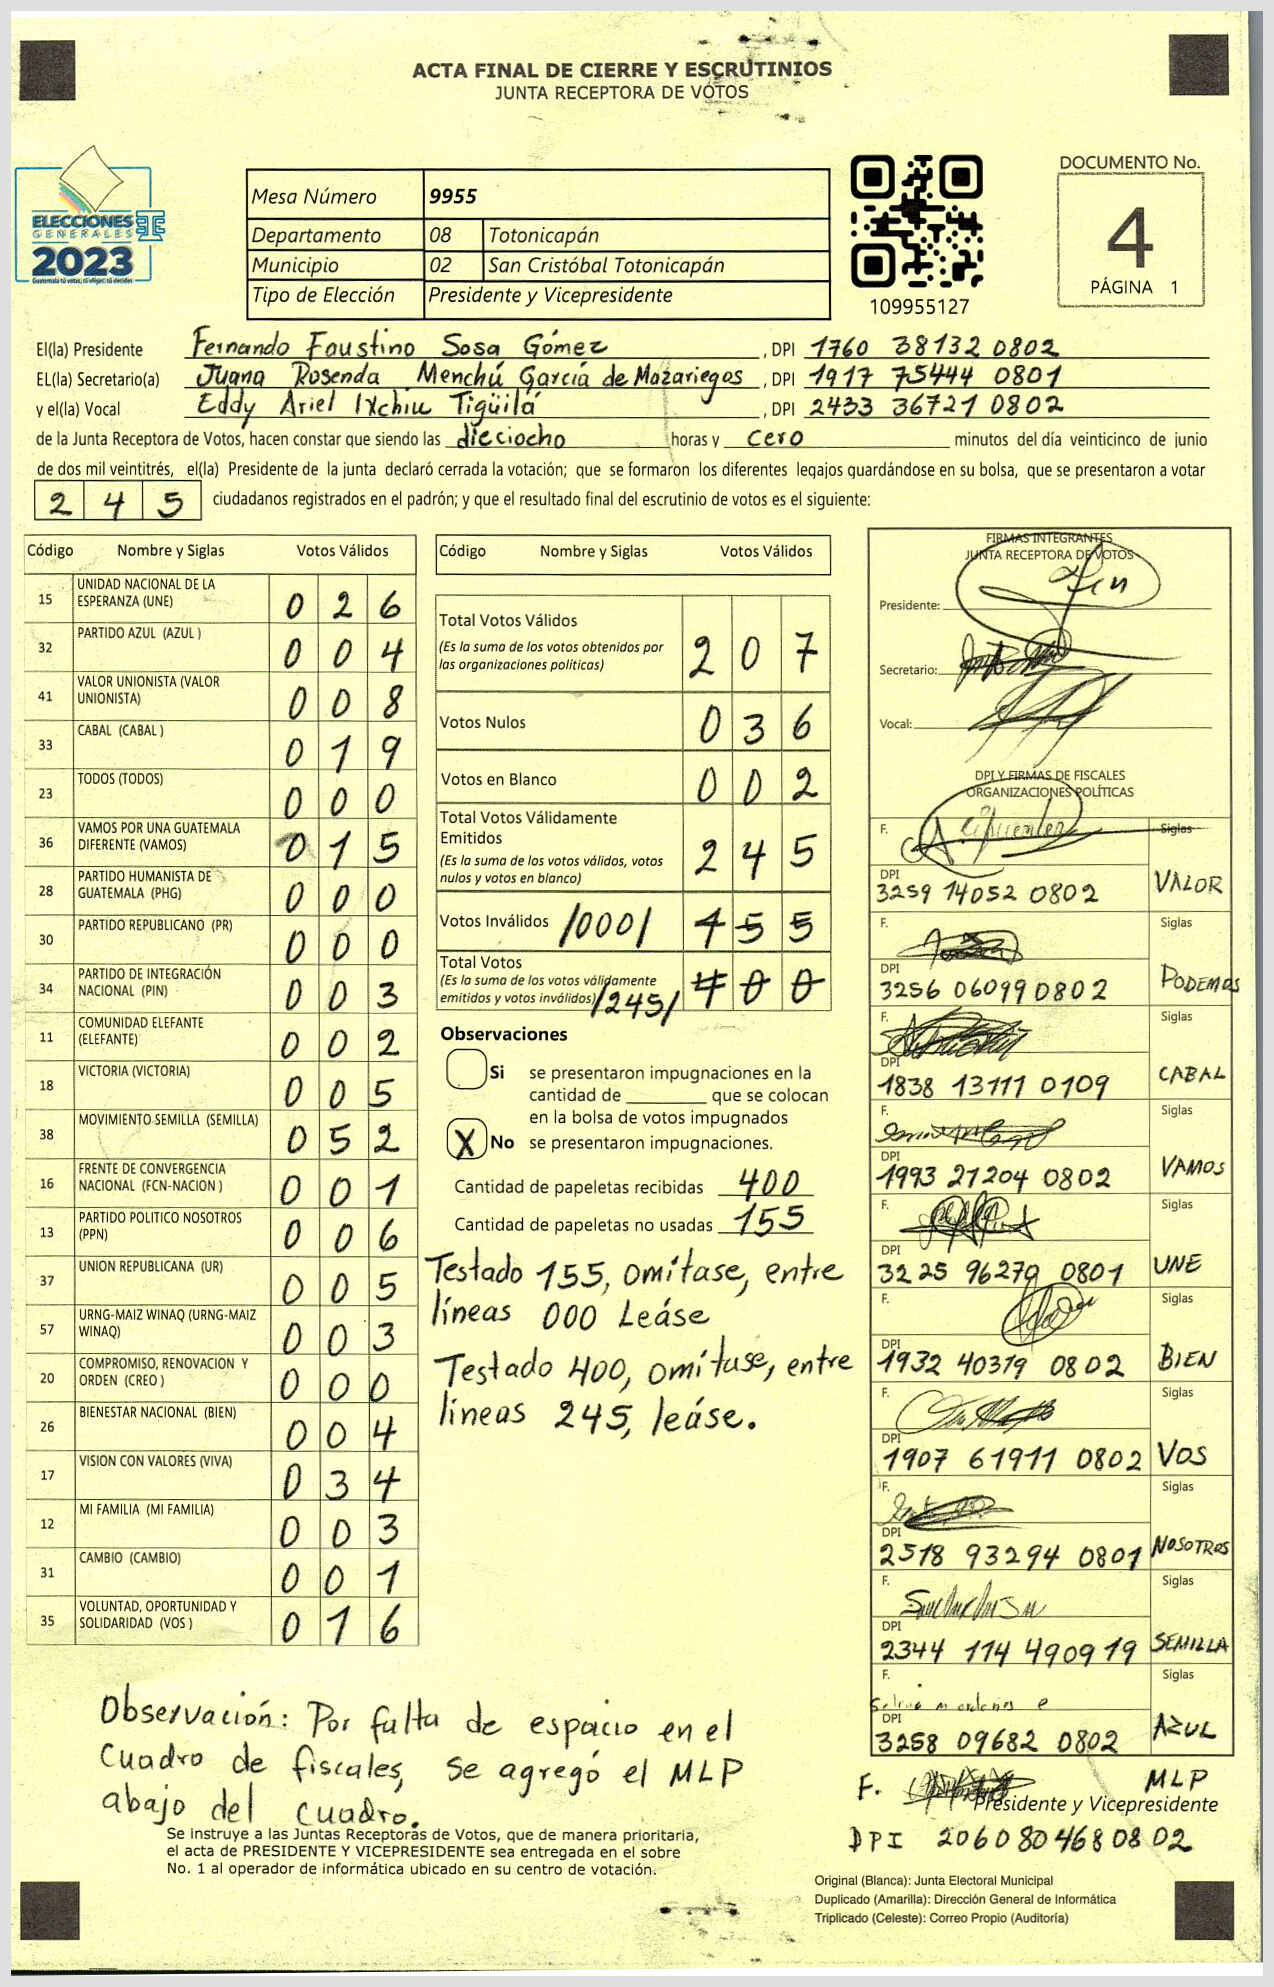 ACTA FINAL DE CIERRE Y ESCRUTINIOS
JUNTA RECEPTORA DE VOTOS
ELECCIONES
GENERALES
2023
Guatemala tú votas, tú eliges, tú decides
Mesa Número 9955
Departamento 08 Totonicapán
Municipio 02 San Cristóbal Totonicapán
Tipo de Elección Presidente y Vicepresidente
109955127
DOCUMENTO No.
4
PÁGINA 1
El(la) Presidente Fernando Faustino Sosa Gómez , DPI 1760 38132 0802
EL(la) Secretario(a) Juana Rosenda Menchú García de Mazariegos , DPI 1917 75444 0801
y el(la) Vocal Eddy Ariel Ixchiu Tigüilá , DPI 2433 36721 0802
de la Junta Receptora de Votos, hacen constar que siendo las dieciocho horas y cero minutos del día veinticinco de junio
de dos mil veintitrés, el(la) Presidente de la junta declaró cerrada la votación; que se formaron los diferentes legajos guardándose en su bolsa, que se presentaron a votar
2 4 5 ciudadanos registrados en el padrón; y que el resultado final del escrutinio de votos es el siguiente:
Código Nombre y Siglas Votos Válidos
15 UNIDAD NACIONAL DE LA ESPERANZA (UNE) 0 2 6
32 PARTIDO AZUL (AZUL ) 0 0 4
41 VALOR UNIONISTA (VALOR UNIONISTA) 0 0 8
33 CABAL (CABAL ) 0 1 9
23 TODOS (TODOS) 0 0 0
36 VAMOS POR UNA GUATEMALA DIFERENTE (VAMOS) 0 1 5
28 PARTIDO HUMANISTA DE GUATEMALA (PHG) 0 0 0
30 PARTIDO REPUBLICANO (PR) 0 0 0
34 PARTIDO DE INTEGRACIÓN NACIONAL (PIN) 0 0 3
11 COMUNIDAD ELEFANTE (ELEFANTE) 0 0 2
18 VICTORIA (VICTORIA) 0 0 5
38 MOVIMIENTO SEMILLA (SEMILLA) 0 5 2
16 FRENTE DE CONVERGENCIA NACIONAL (FCN-NACION ) 0 0 1
13 PARTIDO POLITICO NOSOTROS (PPN) 0 0 6
37 UNION REPUBLICANA (UR) 0 0 5
57 URNG-MAIZ WINAQ (URNG-MAIZ WINAQ) 0 0 3
20 COMPROMISO, RENOVACION Y ORDEN (CREO ) 0 0 0
26 BIENESTAR NACIONAL (BIEN) 0 0 4
17 VISION CON VALORES (VIVA) 0 3 4
12 MI FAMILIA (MI FAMILIA) 0 0 3
31 CAMBIO (CAMBIO) 0 0 1
35 VOLUNTAD, OPORTUNIDAD Y SOLIDARIDAD (VOS ) 0 1 6
Código Nombre y Siglas Votos Válidos
Total Votos Válidos 2 0 7
(Es la suma de los votos obtenidos por
las organizaciones políticas)
Votos Nulos 0 3 6
Votos en Blanco 0 0 2
Total Votos Válidamente
Emitidos 2 4 5
(Es la suma de los votos válidos, votos
nulos y votos en blanco)
Votos Inválidos /000/ 1 5 5
Total Votos
(Es la suma de los votos válidamente
emitidos y votos inválidos) /245/ 4 0 0
Observaciones
Si se presentaron impugnaciones en la
cantidad de ________ que se colocan
en la bolsa de votos impugnados
X No se presentaron impugnaciones.
Cantidad de papeletas recibidas 400
Cantidad de papeletas no usadas 155
Testado 155, omítase, entre
líneas 000 Leáse
Testado 400, omítase, entre
líneas 245, leáse.
FIRMAS INTEGRANTES
JUNTA RECEPTORA DE VOTOS
Presidente:
Secretario:
Vocal:
DPI Y FIRMAS DE FISCALES
ORGANIZACIONES POLÍTICAS
F. Cifuentes Siglas
DPI
3259 14052 0802 VALOR
F. Siglas
DPI
3256 06099 0802 PODEMOS
F. Siglas
DPI
1838 13111 0109 CABAL
F. Siglas
DPI
1993 21204 0802 VAMOS
F. Siglas
DPI
3225 96279 0801 UNE
F. Siglas
DPI
1932 40319 0802 BIEN
F. Siglas
DPI
1907 61911 0802 VOS
F. Siglas
DPI
2518 93294 0801 NOSOTROS
F. Siglas
DPI
2344 114 490919 SEMILLA
F. Siglas
DPI
3258 09682 0802 AZUL
F. MLP
Presidente y Vicepresidente
DPI 2060804680802
Observación: Por falta de espacio en el
cuadro de fiscales, se agregó el MLP
abajo del cuadro.
Se instruye a las Juntas Receptoras de Votos, que de manera prioritaria,
el acta de PRESIDENTE Y VICEPRESIDENTE sea entregada en el sobre
No. 1 al operador de informática ubicado en su centro de votación.
Original (Blanca): Junta Electoral Municipal
Duplicado (Amarilla): Dirección General de Informática
Triplicado (Celeste): Correo Propio (Auditoría)